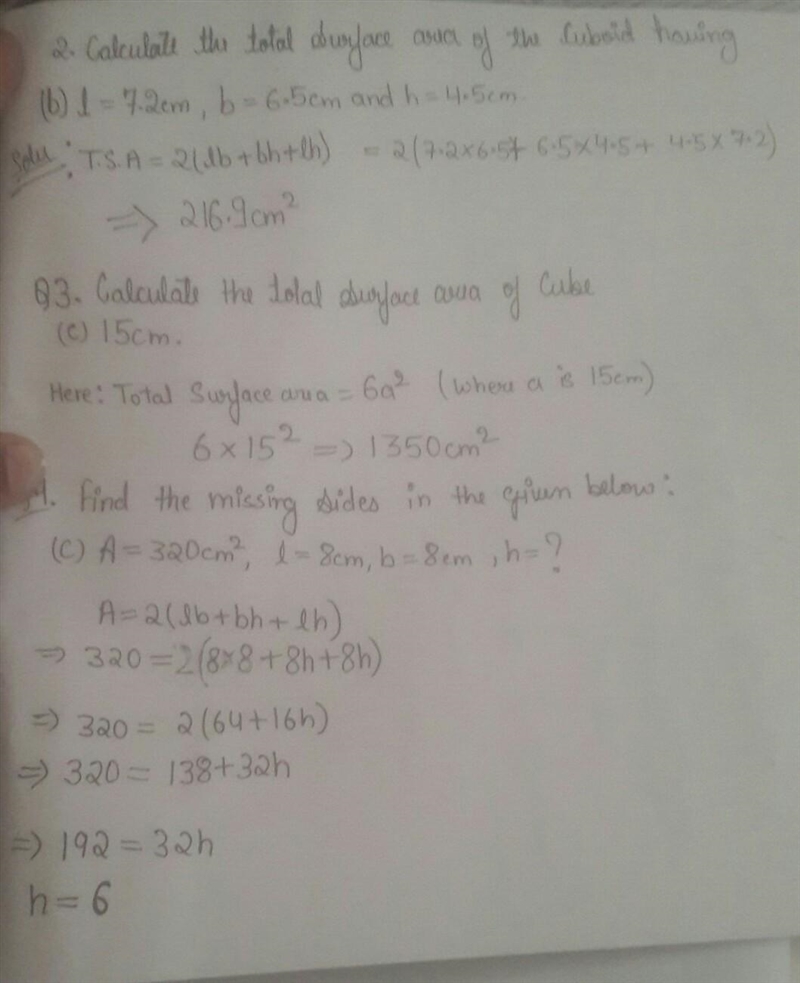 2. Calculate the total surface area of the Cuboid having
(b) l = 7.2cm, b = 6.5cm and h = 4.5cm.
Solu: T.S.A = 2(lb+bh+lh) = 2(7.2×6.5+ 6.5×4.5+ 4.5×7.2)
⇒ 216.9cm²
Q3. Calculate the total surface area of Cube
(c) 15cm.
Here: Total Surface area = 6a² (where a is 15cm)
6×15² ⇒ 1350cm²
4. Find the missing sides in the given below:
(C) A = 320cm², l = 8cm, b = 8cm, h = ?
A = 2(lb+bh+lh)
⇒ 320 = 2(8×8+8h+8h)
⇒ 320 = 2(64+16h)
⇒ 320 = 138+32h
⇒ 192 = 32h
h = 6